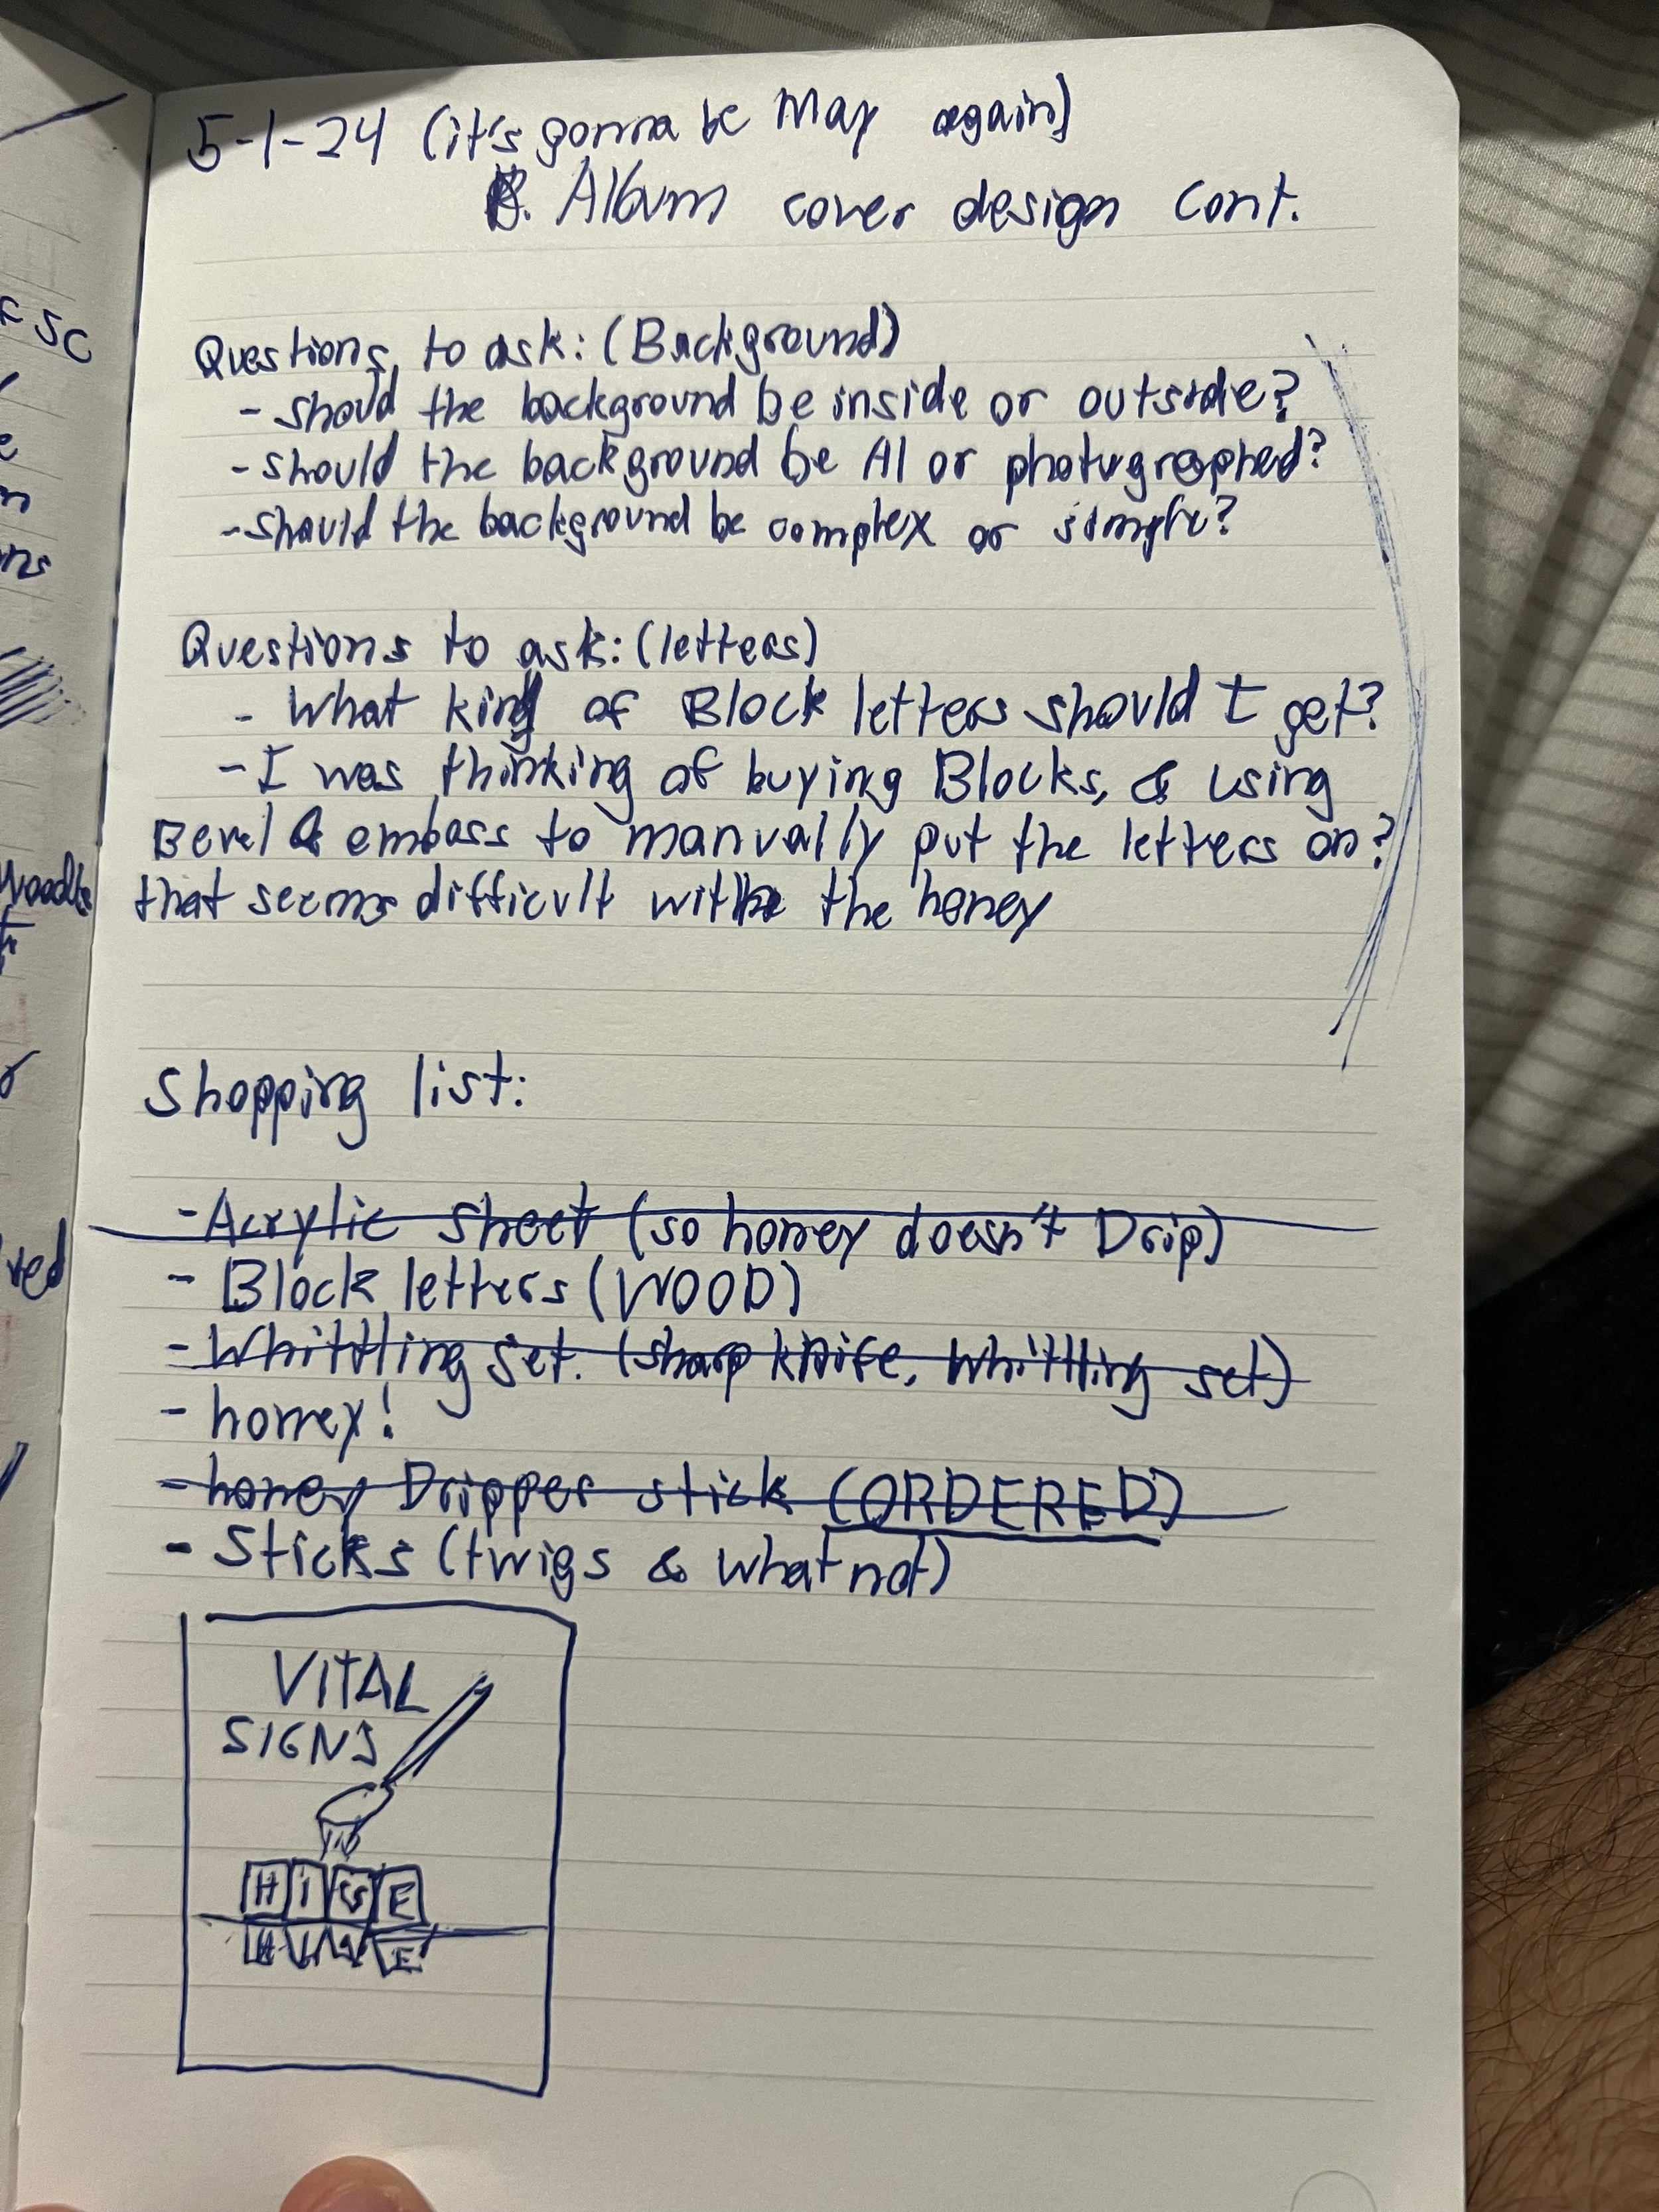 5-1-24 (it's gonna be May again)
Album cover design cont.
Questions to ask: (Background)
- should the background be inside or outside?
- should the background be AI or photographed?
- should the background be complex or simple?
Questions to ask: (letters)
- What kind of Block letters should I get?
- I was thinking of buying Blocks, & using
Bevel & emboss to manually put the letters on?
that seems difficult with the honey
Shopping list:
- Acrylic sheet (so honey doesn't Drip)
- Block letters (WOOD)
- Whittling set. (sharp knife, whittling set)
- honey!
- honey Dripper stick (ORDERED)
- Sticks (twigs & what not)
VITAL
SIGNS